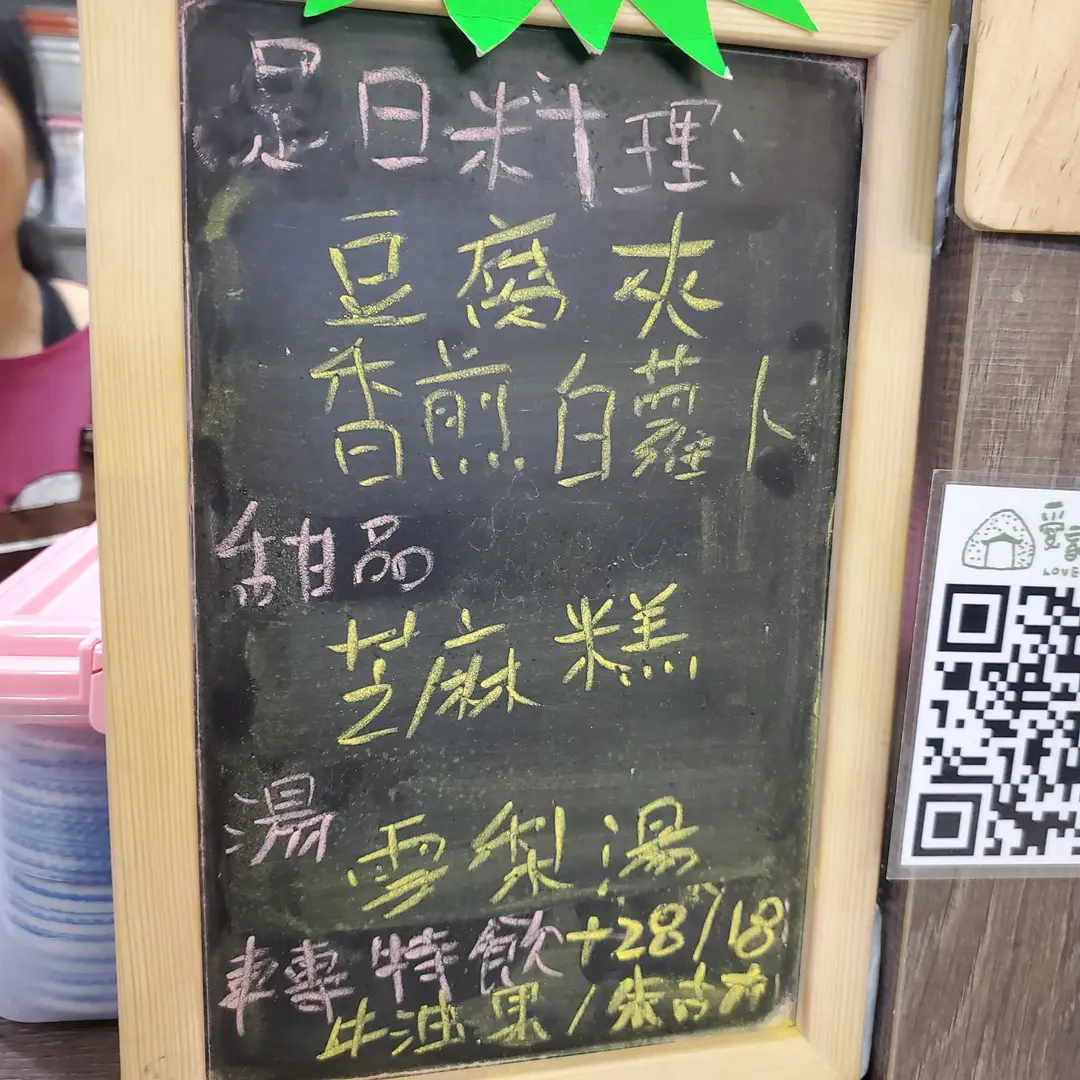 是日料理:
豆腐夾
香煎白蘿卜
甜品
芝麻糕
湯
雪梨湯
轉特飲+28/18
牛油果/朱古力
LOVE